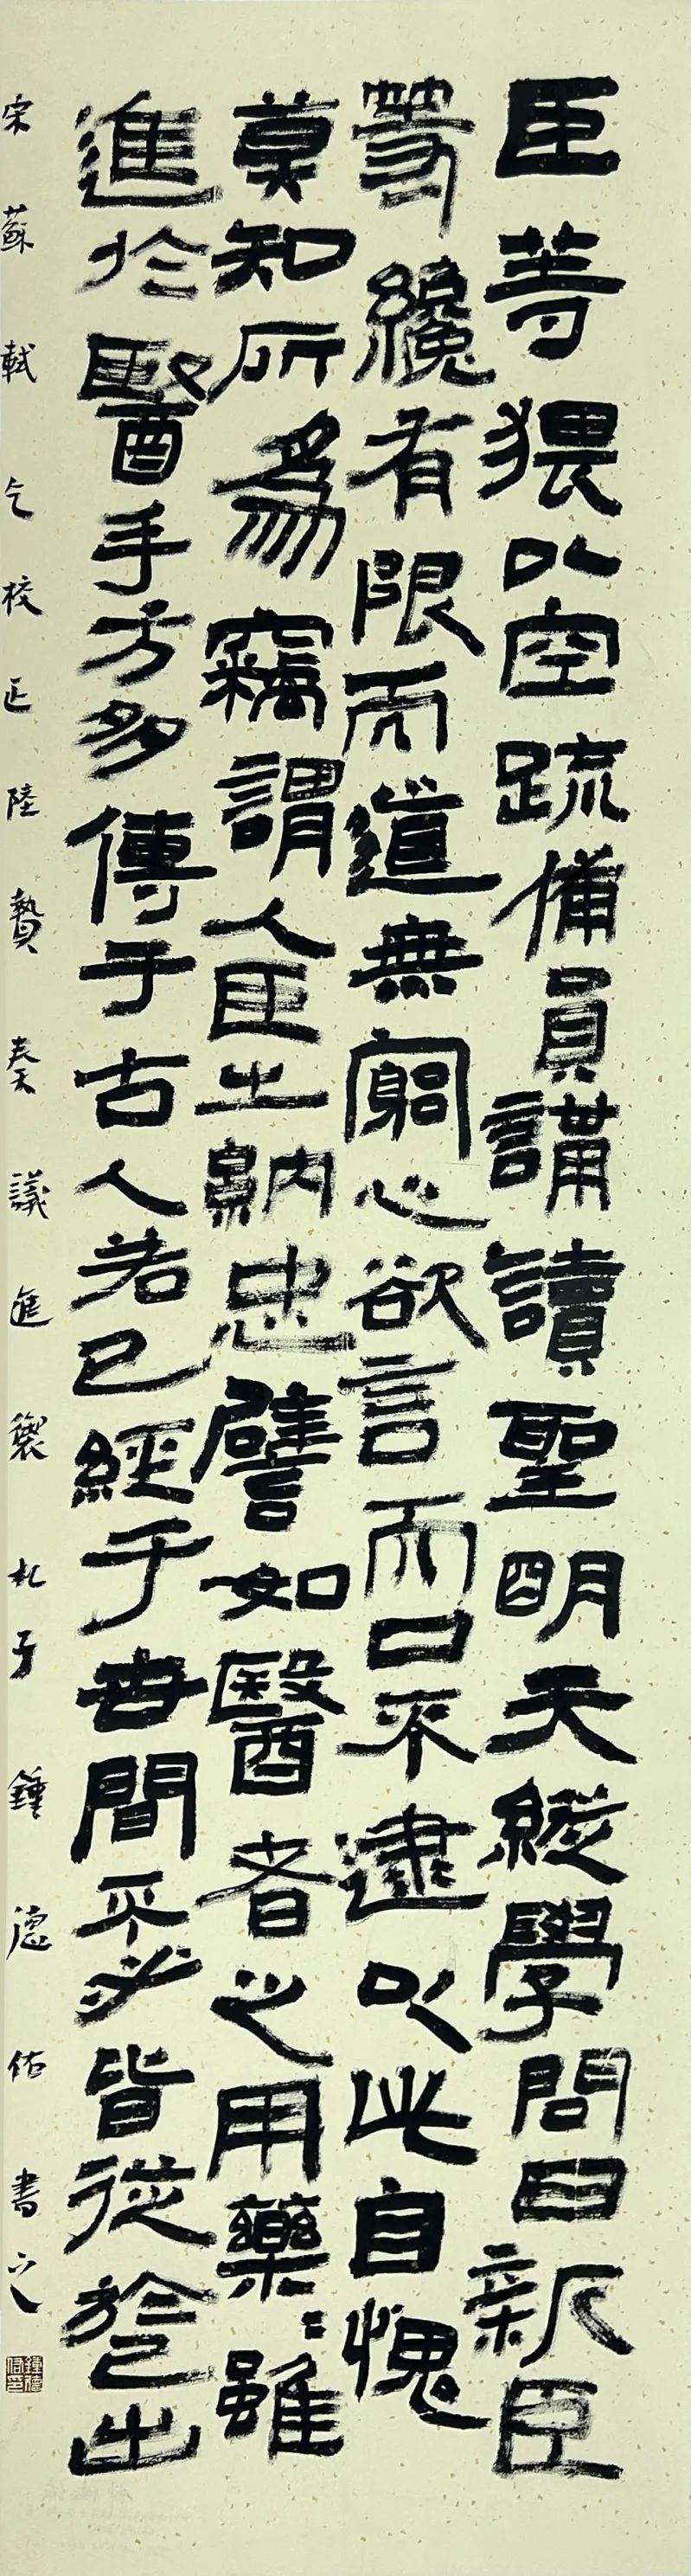 臣等猥以空疏備員講讀聖明天縱學問日新臣
等纔有限而道無窮心欲言而口不逮以此自愧
莫知所為竊謂人臣之納忠譬如醫者之用藥〻雖
進於醫手方多傳于古人若已經于世間不必皆從於己出
宋蘇軾乞校正陸贄奏議進禦札子鍾德佑書之
鍾德佑印